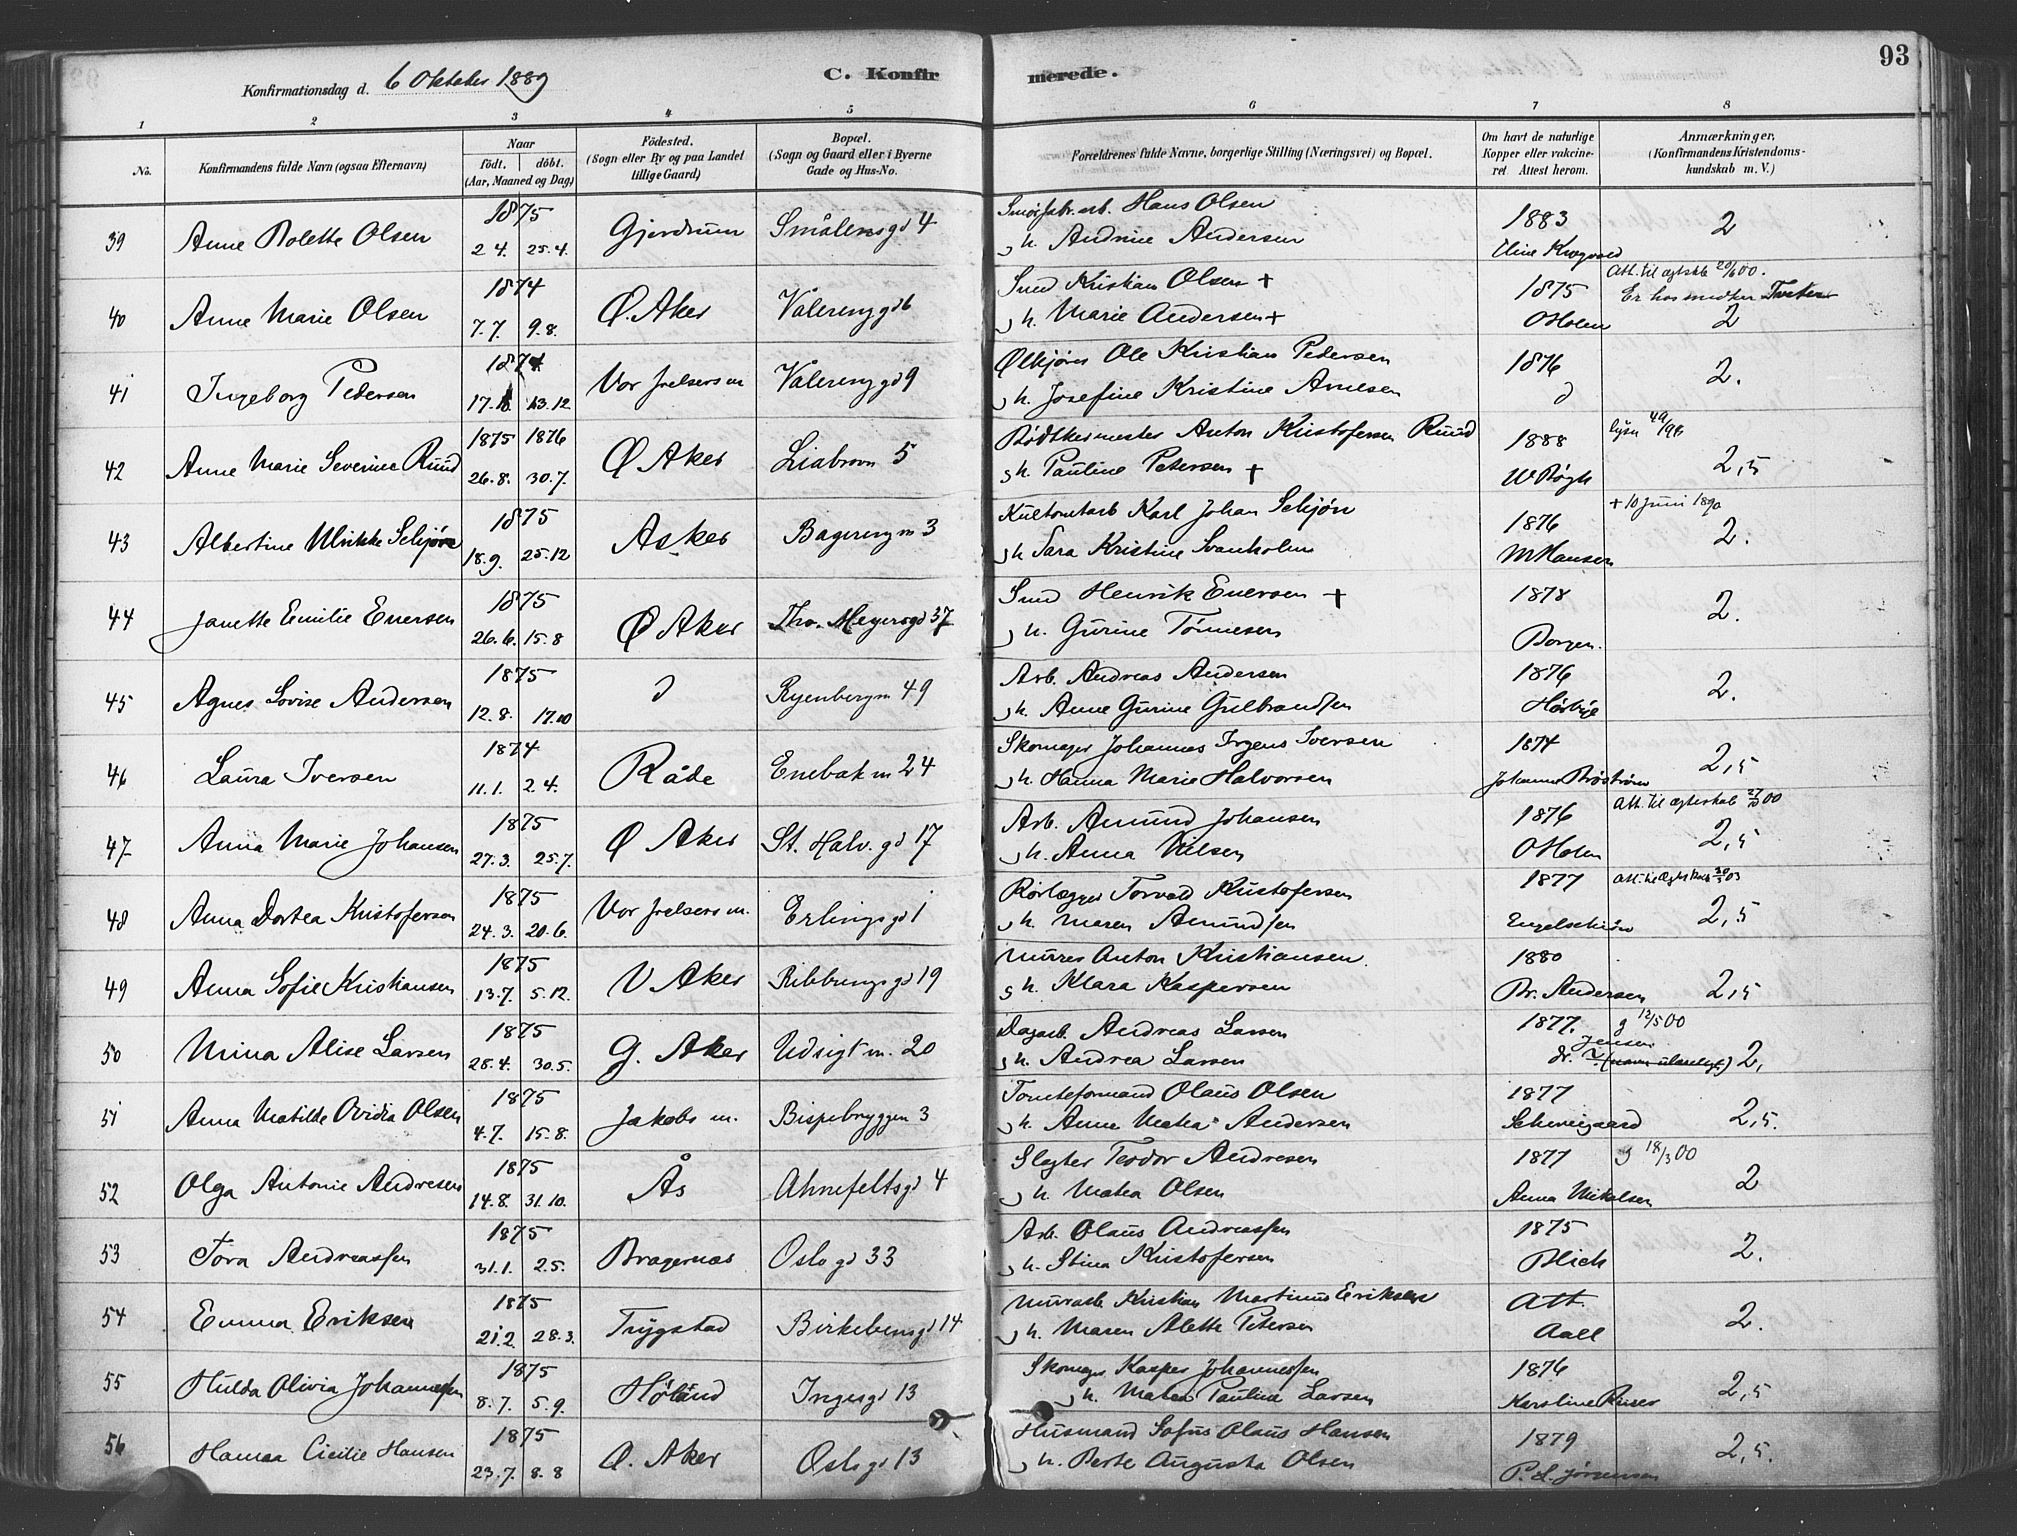 93
Konfirmationsdag d. 6 Oktober 1889
C. Konfirmerede.
1 2 3 4 5 6 7 8
No.
Konfirmandens fulde Navn (ogsaa Efternavn)
Naar
födt. döbt.
(Aar, Maaned og Dag)
Födested.
(Sogn eller By og paa Landet
tillige Gaard)
Bopæl.
(Sogn og Gaard eller i Byerne
Gade og Hus-No.
Forældrenes fulde Navne, borgerlige Stilling (Næringsvei) og Bopæl.
Om havt de naturlige
Kopper eller vakcineret.
Attest herom.
Anmærkninger.
(Konfirmandens Kristendomskundskab
m. V.)
39 Anne Bolette Olsen 1875 2 4. 25.4. Gjerdrum Smålensgd 4 Smørfabr.arb. Hans Olsen
h. Andrine Andersen 1883 2
40 Anne Marie Olsen 1874 7.7. 9.8. Ø. Aker Vålerenggd 6 Smed Kristian Olsen +
h. Marie Andersen + 1875 O Holen Att. til ægtsk 20/6 00. 2
41 Ingeborg Pedersen 1874 13.12 Vor Frelsers m Vålerenggd 9 Ølkjører Ole Kristian Pedersen
h. Josefine Kristine Arnesen 1876 d 2.
42 Anne Marie Severine Ruud 1875 1876 26.8. 30.7. Ø Aker Liabrovn 5 Bødtkermester Anton Kristofersen Ruud
h. Pauline Petersen + 1888 W Bøgh 2,5
43 Albertine Ulrikke Schjørn 1875 18.9. 25.12 Asker Bagerengvn 3 Karl Johan Schjørn
h Sara Kristine Svanholm 1876 M Hansen + 10 Juni 1890 2.
44 Janette Emilie Enersen 1875 26.6. 15.8 Ø Aker Thv. Meyersgd 37 Smed Henrik Enersen +
h. Gurine Tønnesen 1878 Borgen. 2.
45 Agnes Lovise Andersen 1875 12.8. 17.10 d Ryenbergvn 49 Arb. Andreas Andersen
h. Anne Gurine Gulbrandsen 1876 Hørbye 2.
46 Laura Iversen 1874 11.1. 2.4. Råde Enebakvn 24 Skomager Johannes Irgens Iversen
h. Hanna Marie Halvorsen 1874 2,5
47 Anna Marie Johansen 1875 27.3. 25.7. Ø Aker St. Halv. gd 17 Arb. Amund Johansen
h. Anna Nilsen 1876 O Holen Att. til ægteskab 00 2,5
48 Anna Dortea Kristofersen 1875 24.3. 20.6. Vor Frelsers m. Erlingsgd 1 Rørlægger Torvald Kristofersen
h. Maren Amundsen 1877 2,5
49 Anna Sofie Kristiansen 1875 13.7. 5.12. V Aker Ribbungsgd 19 Murer Anton Kristiansen
h. Klara Kaspersen 1880 Br. Andersen 2,5
50 Mina Alise Larsen 1875 28.4. 30.5. G. Aker Udsigtvn. 20 Dagarb. Andreas Larsen
h. Andrea Larsen 1877. Jensen dr. ? (navn ulæseligt) g 12/5 00 2.
51 Anna Matilde Ovidia Olsen 1875 4.7. 15.8. Jakobs m. Bispebryggen 3 Tomteformand Olaus Olsen
h. Anne Matea Andersen 1877 Schweigaard 2,5.
52 Olga Antonie Andresen 1875 14.8. 31.10. Ås Ahnefeltsgd 4 Slagter Teodor Andresen
h. Matea Olsen 1877 Anna Nikolsen g 18/3 00 2
53 Tora Andreassen 1875 31.1. 2.5. Bragernes Oslogd 33 Arb. Olaus Andreassen
h. Stina Kristofersen 1875 Blich 2.
54 Emma Eriksen 1875 21.2. 28.3. Trygstad Birkebeinsgd 14 Murarb Kristian Martinus Eriksen
h. Maren Alette Petersen Att. Aall 2.
55 Hulda Olivia Johannessen 1875 8.7. 5.9. Høland Ingesgd 13 Skomager Kasper Johannessen
h. Matea Pauline Larsen 1876 2,5
56 Hanna Cicilie Hansen 1875 23.7. 8.8 Ø. Aker Oslogd 13 Husmand Sofus Olaus Hansen
h. Berte Augusta Olsen 1879 P. L. Jørgensen 2,5.